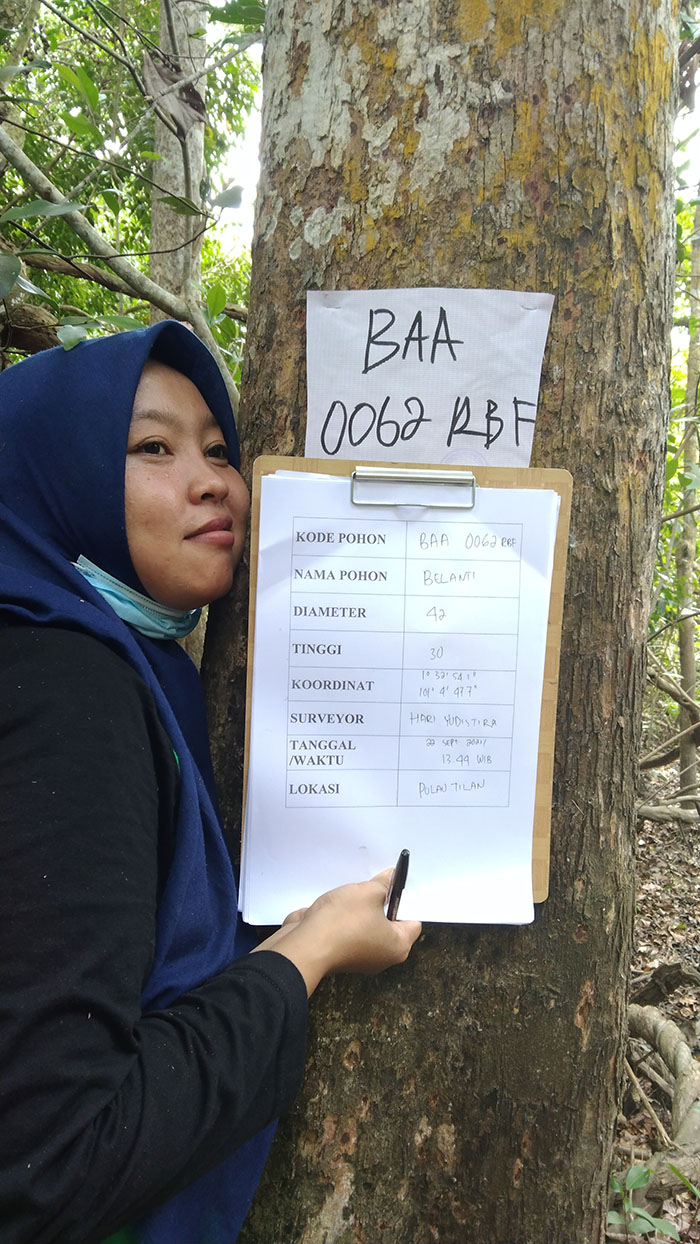 BAA
0062 RBF
KODE POHON BAA 0062 RBF
NAMA POHON BELANTI
DIAMETER 42
TINGGI 30
KOORDINAT 1° 32' 54 1"
101° 4' 47 7"
SURVEYOR HARI YUDISTIRA
TANGGAL 22 SEPT 2021/
/WAKTU 13:44 WIB
LOKASI PULAU TILAN